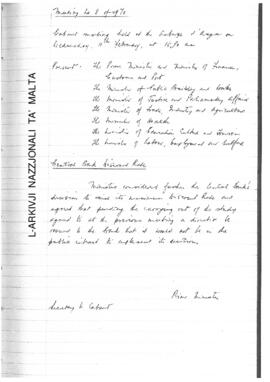 Meeting No 8 of 1970
Cabinet meeting held at the Auberge d'Aragon on
Wednesday, 11th February, at 10.30 am
Present - The Prime Minister and Minister of Finance,
Customs and Port
The Minister of Public Building and Works
The Minister of Justice and Parliamentary Affairs
The Minister of Trade, Industry and Agriculture
The Minister of Health
The Minister of Education Culture and Tourism
The Minister of Labour, Employment and Welfare
Central Bank Discount Rate
Ministers considered further the Central Bank's
decision to raise its minimum discount Rate and
agreed that pending the carrying out of the study
agreed to at the previous meeting a directive be
issued to the Bank that it would not be in the
public interest to implement its decision.
Prime Minister
Secretary to Cabinet
L-ARKIVJI NAZZJONALI TA' MALTA